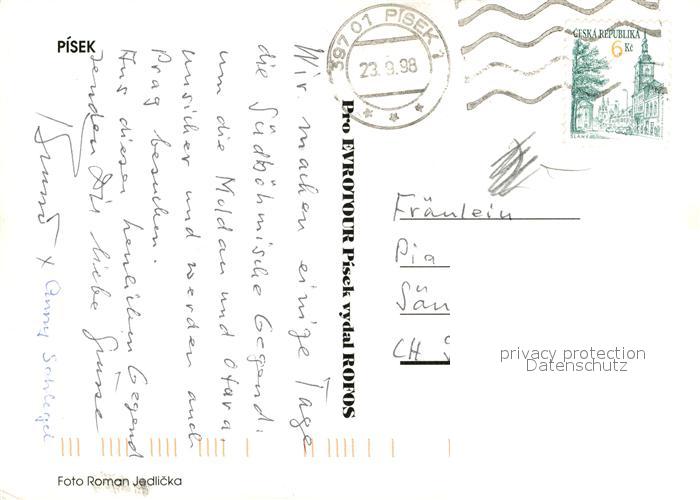 PÍSEK
397 01 PÍSEK 1
23.9.98
ČESKÁ REPUBLIKA
6 Kč
SLANÝ
Wir machen einige Tage
die Südböhmische Gegend
um die Moldau und Otava
unsicher und werden auch
Prag besuchen.
Aus dieser herrlichen Gegend
senden Dir liebe Grüsse
Anny Schlegel
Pro EVROTOUR Písek vydal ROFOS
Fräulein
Pia
Sän
CH
privacy protection
Datenschutz
Foto Roman Jedlička